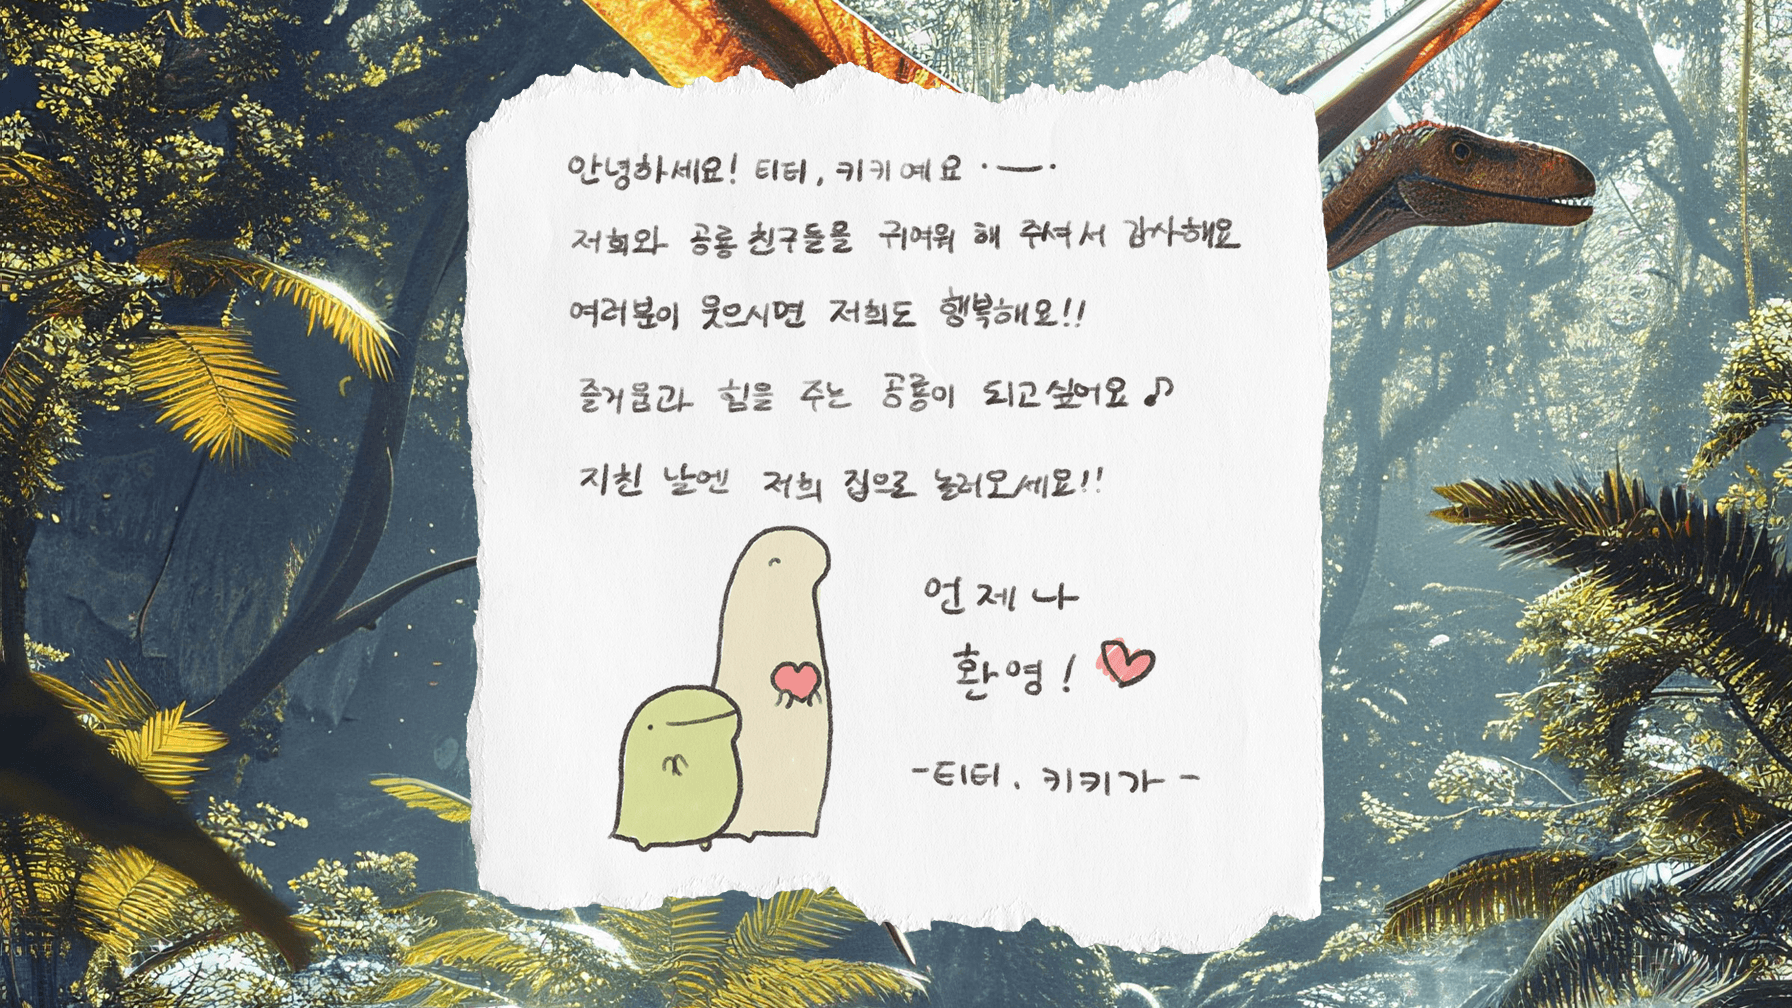 안녕하세요! 티티, 키키예요 ·—·
저희와 공룡 친구들을 귀여워 해 주셔서 감사해요
여러분이 웃으시면 저희도 행복해요!!
즐거움과 힘을 주는 공룡이 되고싶어요 ♪
지친 날엔 저희 집으로 놀러오세요!!
언제나
환영! ♡
-티티. 키키가-